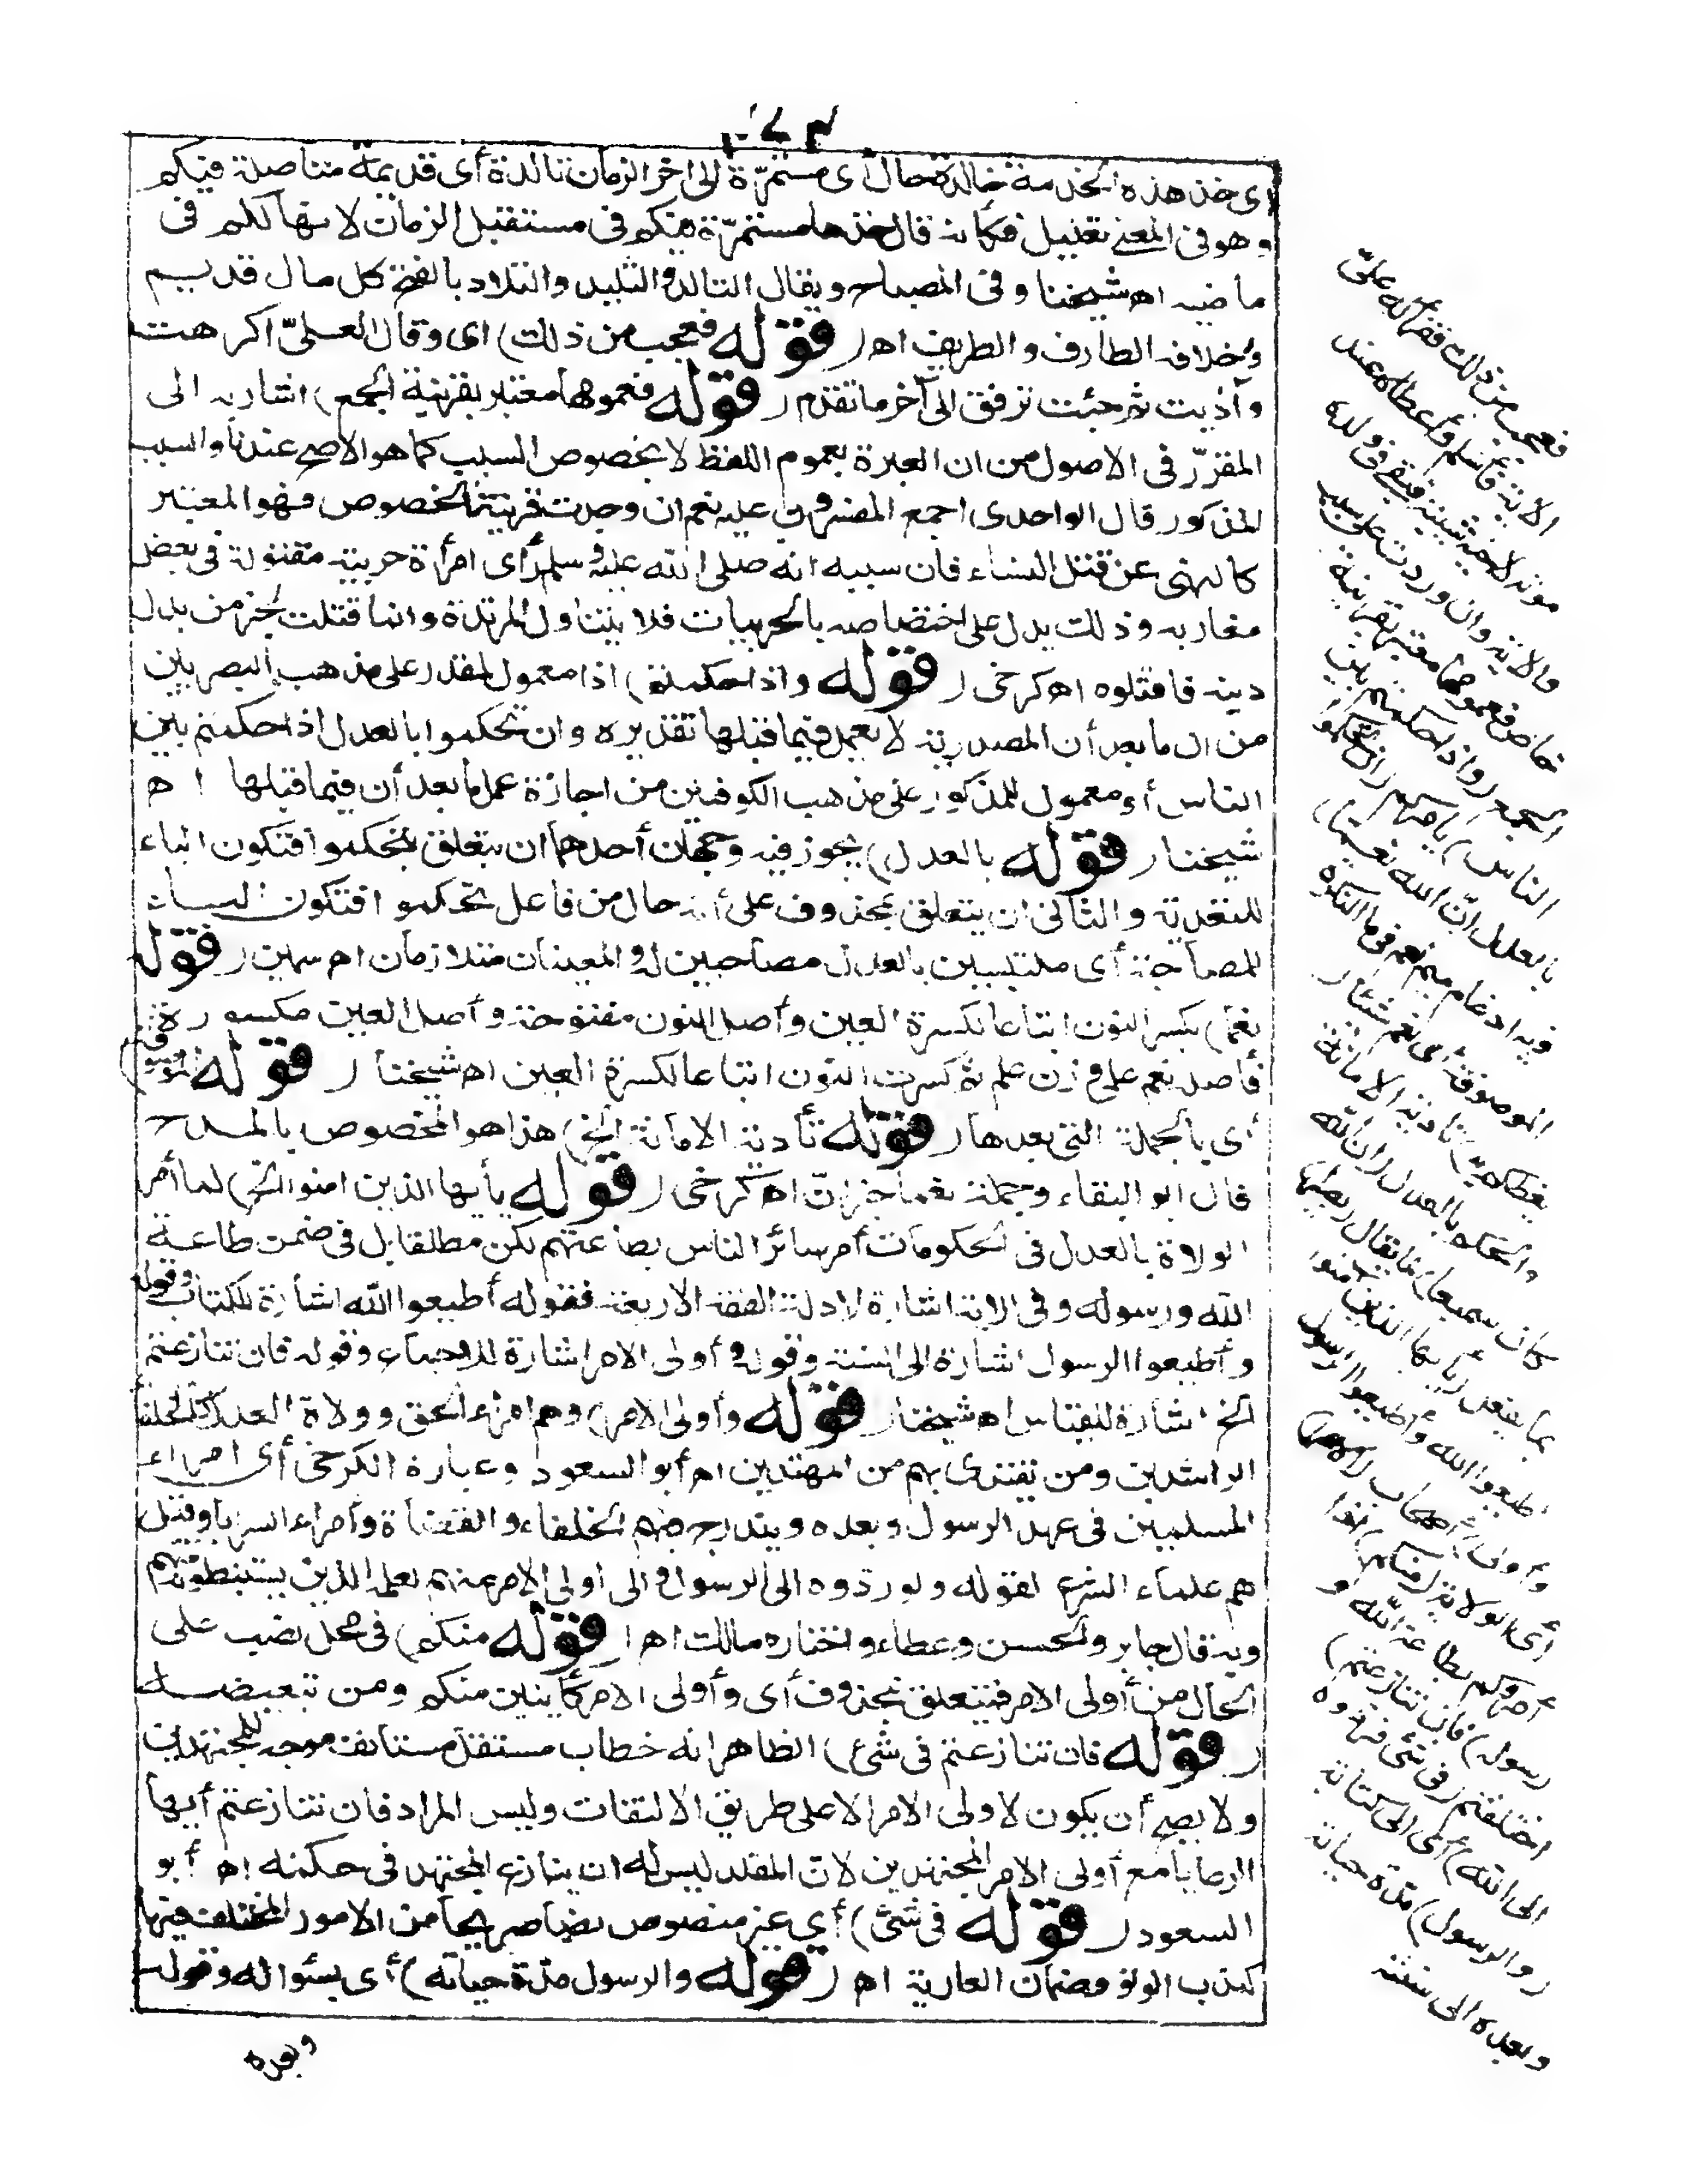 ٤٧٣
اى خذ هذه الخدمة خالدة حال أى مستمرّة الى اخر الزمان تالدة أى قديمة متأصلة فيكم
وهو فى المعنى تعليل فكأنه قال خذها مستمرّة فيكم فى مستقبل الزمان لانها لكم فى
ماضيه اه شيخنا وفى المصباح ويقال التالد والتليد والتلاد بالفتح كل مال قديم
وبخلافه الطارف والطريف اه (قوله فعجب من ذلك) اى وقال لعلىّ اكرهت
وآذيت ثم جئت ترفق الى آخر ما تقدم (قوله فعمومها معتبر بقرينة الجمع) اشار به الى
المقرّر فى الاصول من ان العبرة بعموم اللفظ لا بخصوص السبب كما هو الاصح عندنا والسبب
المذكور قال الواحدى اجمع المفسرون عليه نعم ان وجدت قرينة الخصوص فهو المعتبر
كالنهى عن قتل النساء فان سببه انه صلى الله عليه وسلم رأى امرأة حربية مقتولة فى بعض
مغازيه وذلك يدل على اختصاصه بالحربيات فلا يتناول المرتدة وانما قتلت لخبر من بدل
دينه فاقتلوه اه كرخى (قوله واذا حكمتم) اذا معمول لمقدر على مذهب البصريين
من ان ما بعد أن المصدرية لا يعمل فيما قبلها تقديره وان تحكموا بالعدل اذا حكمتم بين
الناس أو معمول للمذكور على مذهب الكوفيين من اجازة عمل ما بعد أن فيما قبلها اه
شيخنا (قوله بالعدل) يجوز فيه وجهان أحدهما ان يتعلق بتحكموا فتكون الباء
للتعدية والثانى ان يتعلق بمحذوف على أنه حال من فاعل تحكموا فتكون الباء
للمصاحبة أى ملتبسين بالعدل مصاحبين له والمعنيان متلازمان اه سمين (قوله
نعما) بكسر النون اتباعا لكسرة العين وأصل النون مفتوحة وأصل العين مكسورة
فأصل نعم على وزن علم ثم كسرت النون اتباعا لكسرة العين اه شيخنا (قوله
أى بالجملة التى بعدها (قوله تأدية الامانة الخ) هذا هو المخصوص بالمدح
قال ابو البقاء وجملة نعما خبر انّ اه كرخى (قوله يأيها الذين امنوا الخ) لما أمر
الولاة بالعدل فى الحكومات أمر سائر الناس بطاعتهم لكن مطلقا بل فى ضمن طاعة
الله ورسوله وفى الاية اشارة لادلة الفقه الاربعة فقوله أطيعوا الله اشارة للكتاب وقوله
وأطيعوا الرسول اشارة الى السنة وقوله وأولى الامر اشارة للاجماع وقوله فان تنازعتم
الخ اشارة للقياس اه شيخنا (قوله وأولى الامر) وهم امراء الحق وولاة العدل كالخلفاء
الراشدين ومن يقتدى بهم من المهتدين اه أبو السعود وعبارة الكرخى أى امراء
المسلمين فى عهد الرسول وبعده ويندرج فيهم الخلفاء والقضاة وأمراء السرايا وقيل
هم علماء الشرع لقوله ولو ردّوه الى الرسول والى أولى الامر منهم لعلمه الذين يستنبطونه منهم
وبه قال جابر والحسن وعطاء واختاره مالك اه (قوله منكم) فى محل نصب على
الحال من أولى الامر فيتعلق بمحذوف أى وأولى الامر كائنين منكم ومن تبعيضية
(قوله فان تنازعتم فى شئ) الظاهر انه خطاب مستقل مستأنف موجه للمجتهدين
ولا يصح أن يكون لاولى الامر الا على طريق الالتفات وليس المراد فان تنازعتم أيها
الرعايا مع أولى الامر المجتهدين لانّ المقلد ليس له ان ينازع المجتهد فى حكمه اه أبو
السعود (قوله فى شئ) أى غير منصوص نصا صريحا من الامور المختلف فيها
كندب الوتر وضمان العارية اه (قوله والرسول مدّة حياته) أى بسؤاله وقوله
وبعده
فعجب من ذلك فقرأ له علىّ
الاية فأسلم وأعطاه عند
موته لاخيه شيبة فبقى فى ولده
والاية وان وردت على سبب
خاص فعمومها معتبر بقرينة
الجمع (واذا حكمتم بين
الناس) يأمركم (ان تحكموا
بالعدل انّ الله نعما)
فيه ادغام ميم نعم فى ما النكرة
الموصوفة أى نعم شيئا (
يعظكم به) تأدية الامانة
والحكم بالعدل (ان الله
كان سميعا) لما يقال (بصيرا)
بما يفعل (يأيها الذين امنوا
اطيعوا الله وأطيعوا الرسول
وأولى) أصحاب (الامر)
أى الولاة (منكم) اذا
أمروكم بطاعة الله و
رسوله (فان تنازعتم)
اختلفتم (فى شئ فردّوه
الى الله) أى الى كتابه
(والرسول) مدّة حياته
وبعده الى سنته